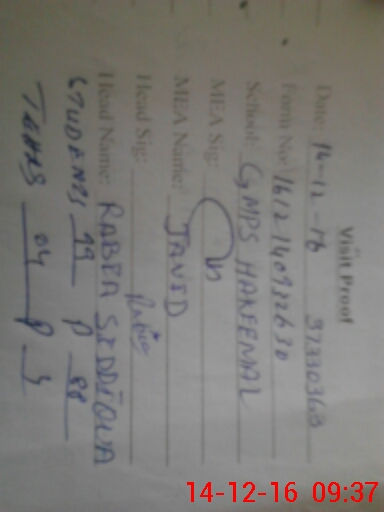 Visit Proof
Date: 14-12-16 37330363
Form No: 1612140922630
School: GMPS HAKEEMAL
MEA Sig:
MEA Name: JAVED
Head Sig: Rabia
Head Name: RABIA SIDDIQUA
STUDENTS 99 P 88
TEHRS 04 P
14-12-16 09:37